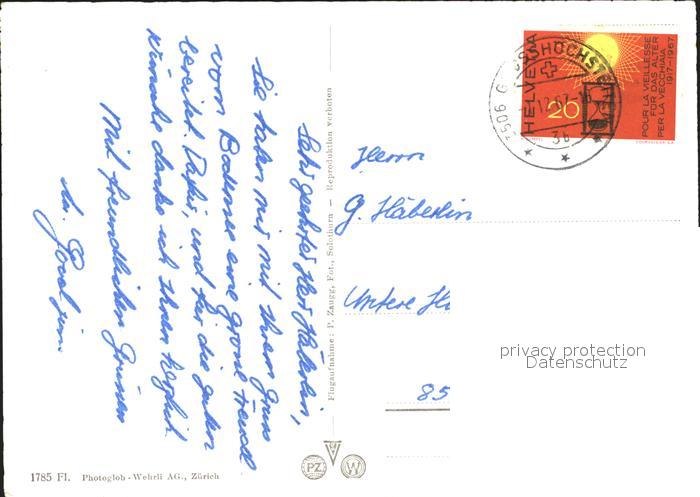 Sehr geehrter Herr Häberlin,
Sie haben mir mit Ihrem Gruss
vom Bodensee eine grosse Freude
bereitet. Dafür, und für die guten
Wünsche danke ich Ihnen herzlich.
Mit freundlichen Grüssen
Flugaufnahme: P. Zaugg, Fot., Solothurn — Reproduktion verboten
HELVETIA
20
POUR LA VIEILLESSE
FÜR DAS ALTER
PER LA VECCHIAIA
1917-1967
Herrn
G. Häberlin
Untere
85
privacy protection
Datenschutz
PZ
W
1785 Fl. Photoglob-Wehrli AG., Zürich